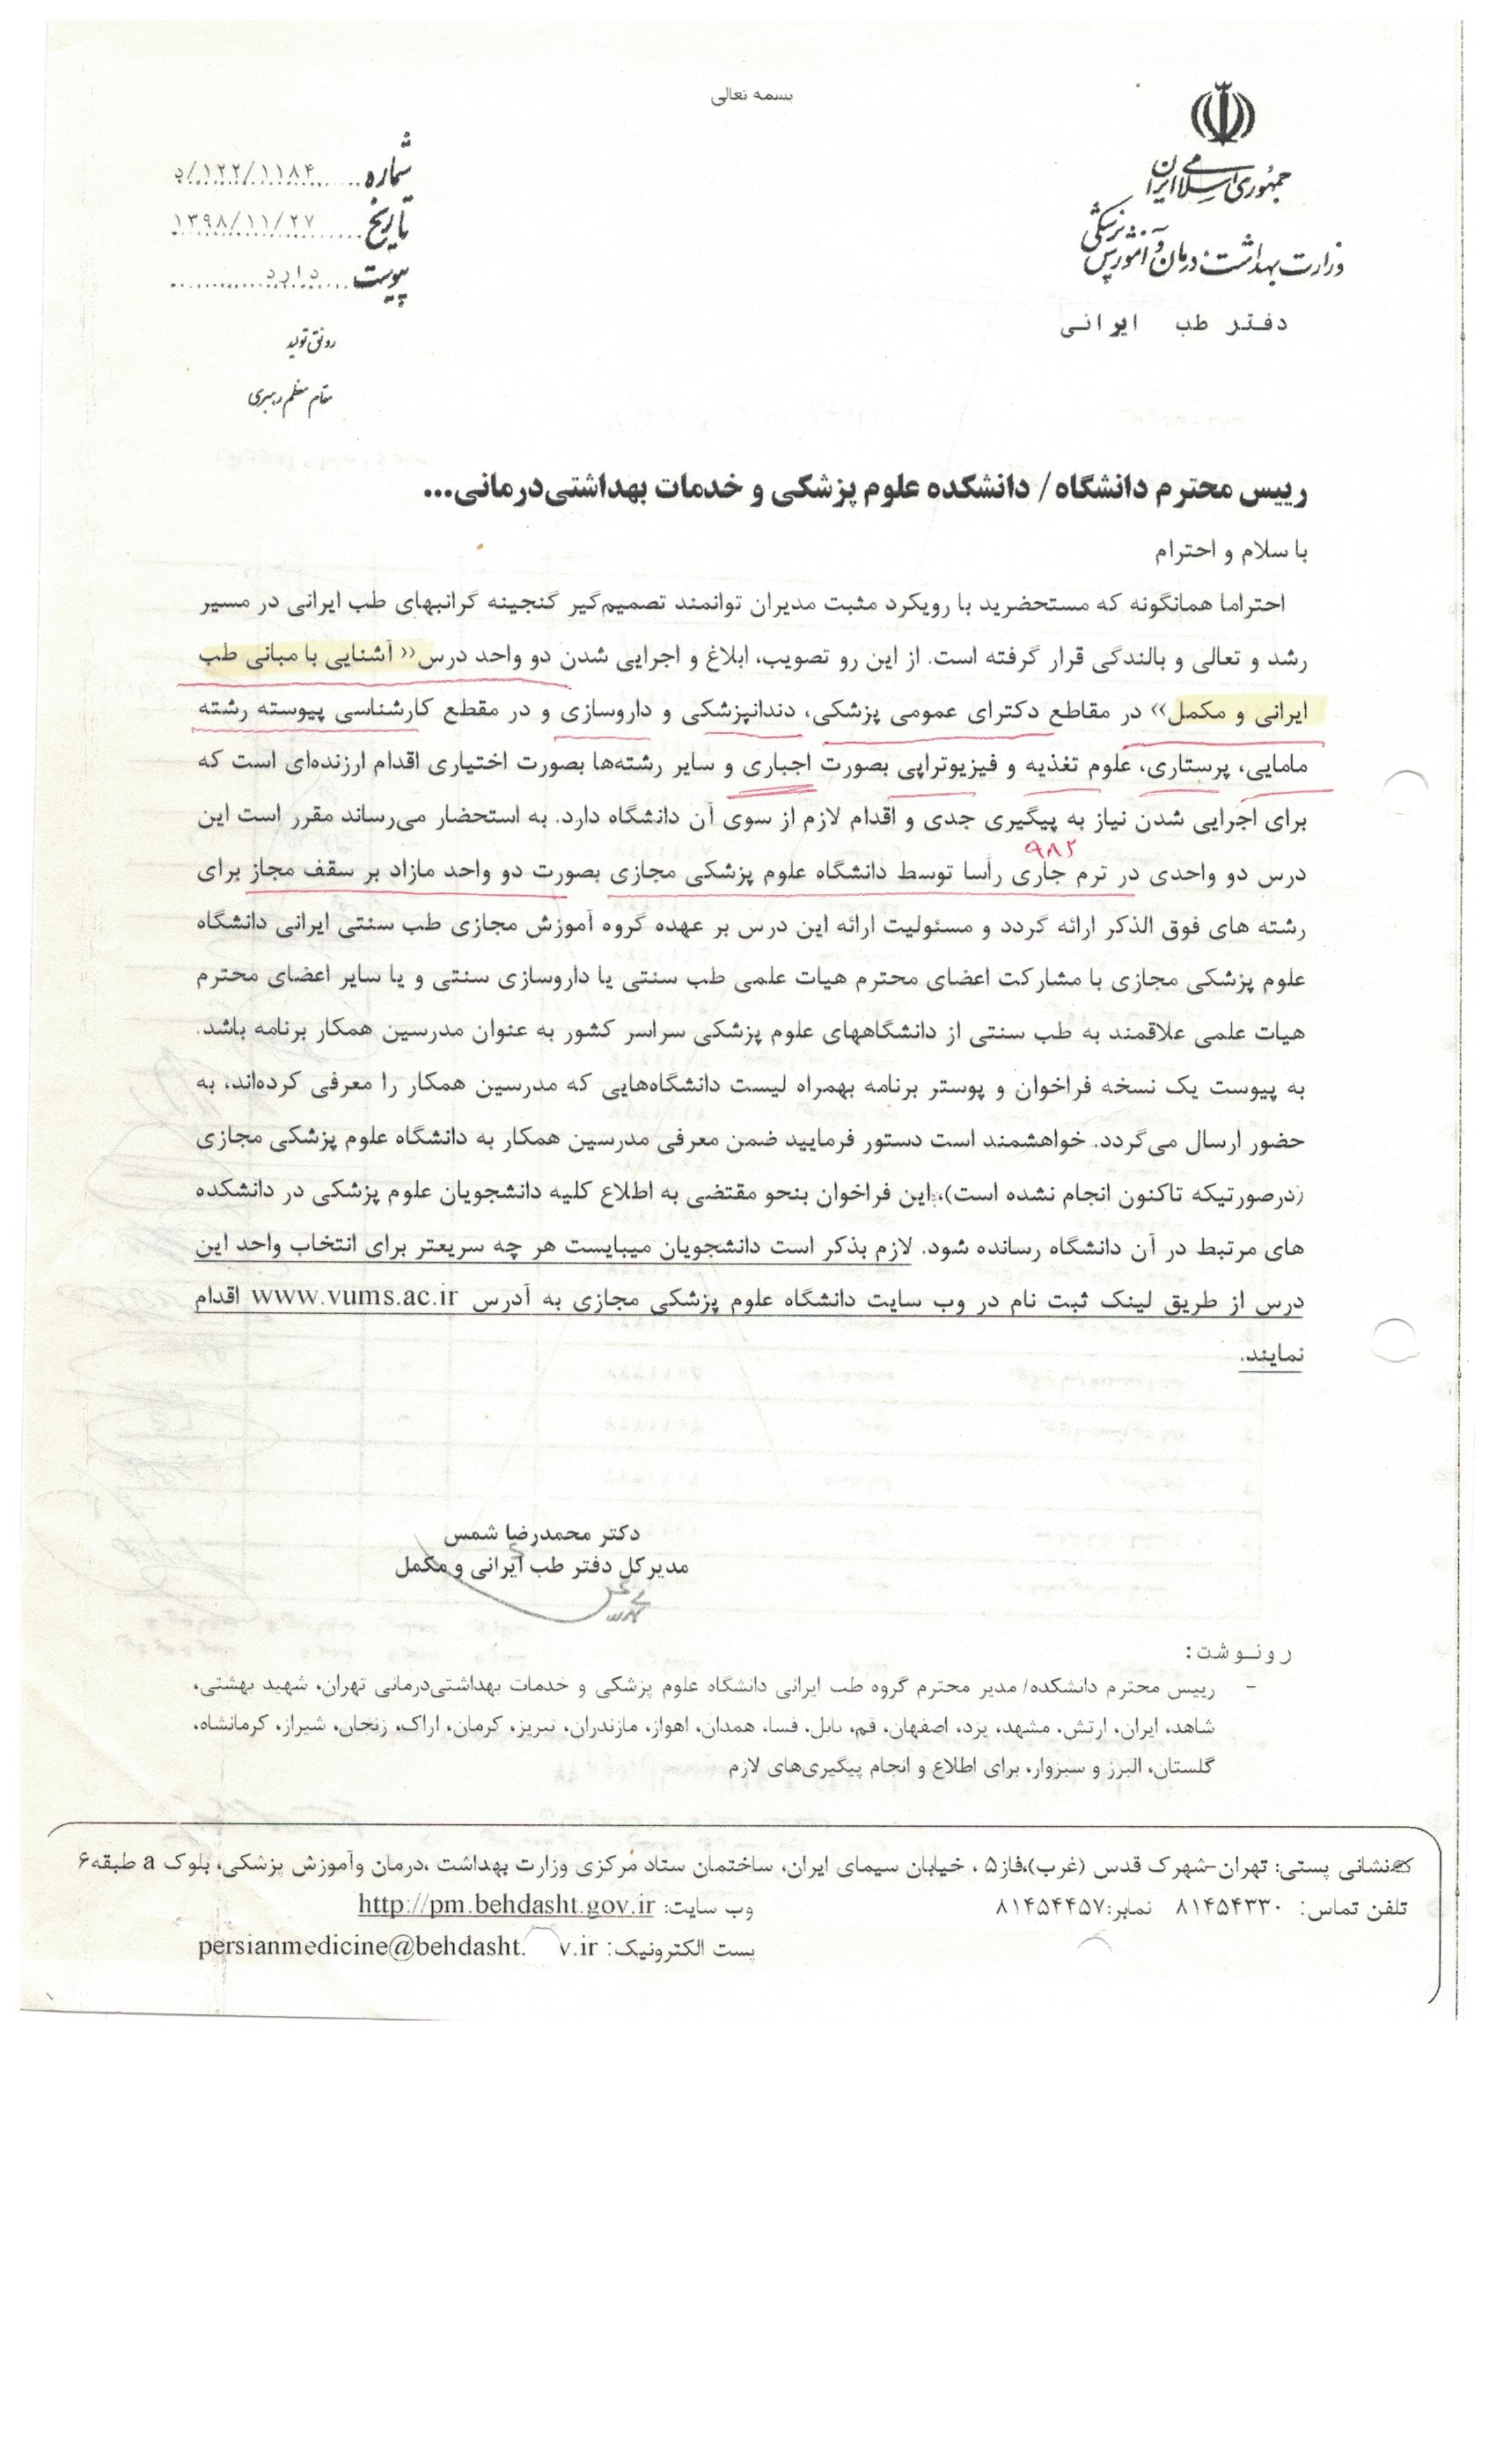 بسمه تعالی
جمهوری اسلامی ایران
وزارت بهداشت، درمان و آموزش پزشکی
دفتر طب ایرانی
شماره ۱۲۲/۱۱۸۴/د
تاریخ ۱۳۹۸/۱۱/۲۷
پیوست دارد
رونق تولید
مقام معظم رهبری
رییس محترم دانشگاه/ دانشکده علوم پزشکی و خدمات بهداشتی‌درمانی...
با سلام و احترام
احتراما همانگونه که مستحضرید با رویکرد مثبت مدیران توانمند تصمیم‌گیر گنجینه گرانبهای طب ایرانی در مسیر
رشد و تعالی و بالندگی قرار گرفته است. از این رو تصویب، ابلاغ و اجرایی شدن دو واحد درس‹‹ آشنایی با مبانی طب
ایرانی و مکمل›› در مقاطع دکترای عمومی پزشکی، دندانپزشکی و داروسازی و در مقطع کارشناسی پیوسته رشته
مامایی، پرستاری، علوم تغذیه و فیزیوتراپی بصورت اجباری و سایر رشته‌ها بصورت اختیاری اقدام ارزنده‌ای است که
برای اجرایی شدن نیاز به پیگیری جدی و اقدام لازم از سوی آن دانشگاه دارد. به استحضار می‌رساند مقرر است این
۹۸۲
درس دو واحدی در ترم جاری رأسا توسط دانشگاه علوم پزشکی مجازی بصورت دو واحد مازاد بر سقف مجاز برای
رشته های فوق الذکر ارائه گردد و مسئولیت ارائه این درس بر عهده گروه آموزش مجازی طب سنتی ایرانی دانشگاه
علوم پزشکی مجازی با مشارکت اعضای محترم هیات علمی طب سنتی یا داروسازی سنتی و یا سایر اعضای محترم
هیات علمی علاقمند به طب سنتی از دانشگاههای علوم پزشکی سراسر کشور به عنوان مدرسین همکار برنامه باشد.
به پیوست یک نسخه فراخوان و پوستر برنامه بهمراه لیست دانشگاه‌هایی که مدرسین همکار را معرفی کرده‌اند، به
حضور ارسال می‌گردد. خواهشمند است دستور فرمایید ضمن معرفی مدرسین همکار به دانشگاه علوم پزشکی مجازی
(درصورتیکه تاکنون انجام نشده است)، این فراخوان بنحو مقتضی به اطلاع کلیه دانشجویان علوم پزشکی در دانشکده
های مرتبط در آن دانشگاه رسانده شود. لازم بذکر است دانشجویان میبایست هر چه سریعتر برای انتخاب واحد این
درس از طریق لینک ثبت نام در وب سایت دانشگاه علوم پزشکی مجازی به آدرس www.vums.ac.ir اقدام
نمایند.
دکتر محمدرضا شمس
مدیرکل دفتر طب ایرانی و مکمل
رونوشت:
- رییس محترم دانشکده/ مدیر محترم گروه طب ایرانی دانشگاه علوم پزشکی و خدمات بهداشتی‌درمانی تهران، شهید بهشتی،
شاهد، ایران، ارتش، مشهد، یزد، اصفهان، قم، بابل، فسا، همدان، اهواز، مازندران، تبریز، کرمان، اراک، زنجان، شیراز، کرمانشاه،
گلستان، البرز و سبزوار، برای اطلاع و انجام پیگیری‌های لازم
نشانی پستی: تهران-شهرک قدس (غرب)،فاز۵ ، خیابان سیمای ایران، ساختمان ستاد مرکزی وزارت بهداشت ،درمان وآموزش پزشکی، بلوک a طبقه۶
تلفن تماس: ۸۱۴۵۴۳۳۰ نمابر:۸۱۴۵۴۴۵۷ وب سایت: http://pm.behdasht.gov.ir
پست الکترونیک: persianmedicine@behdasht. v.ir